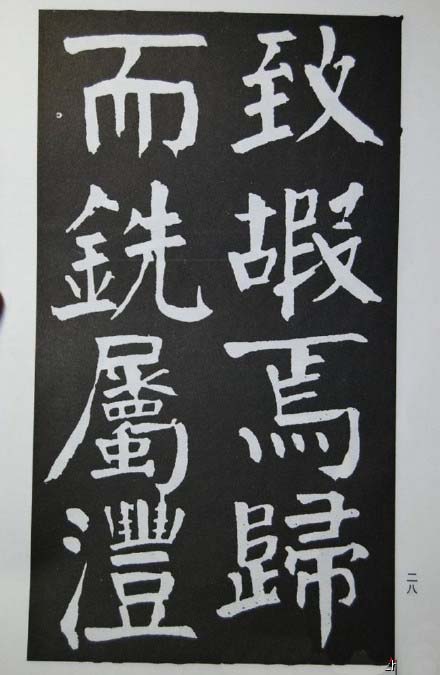 致嘏焉歸
而銑屬灃
二八